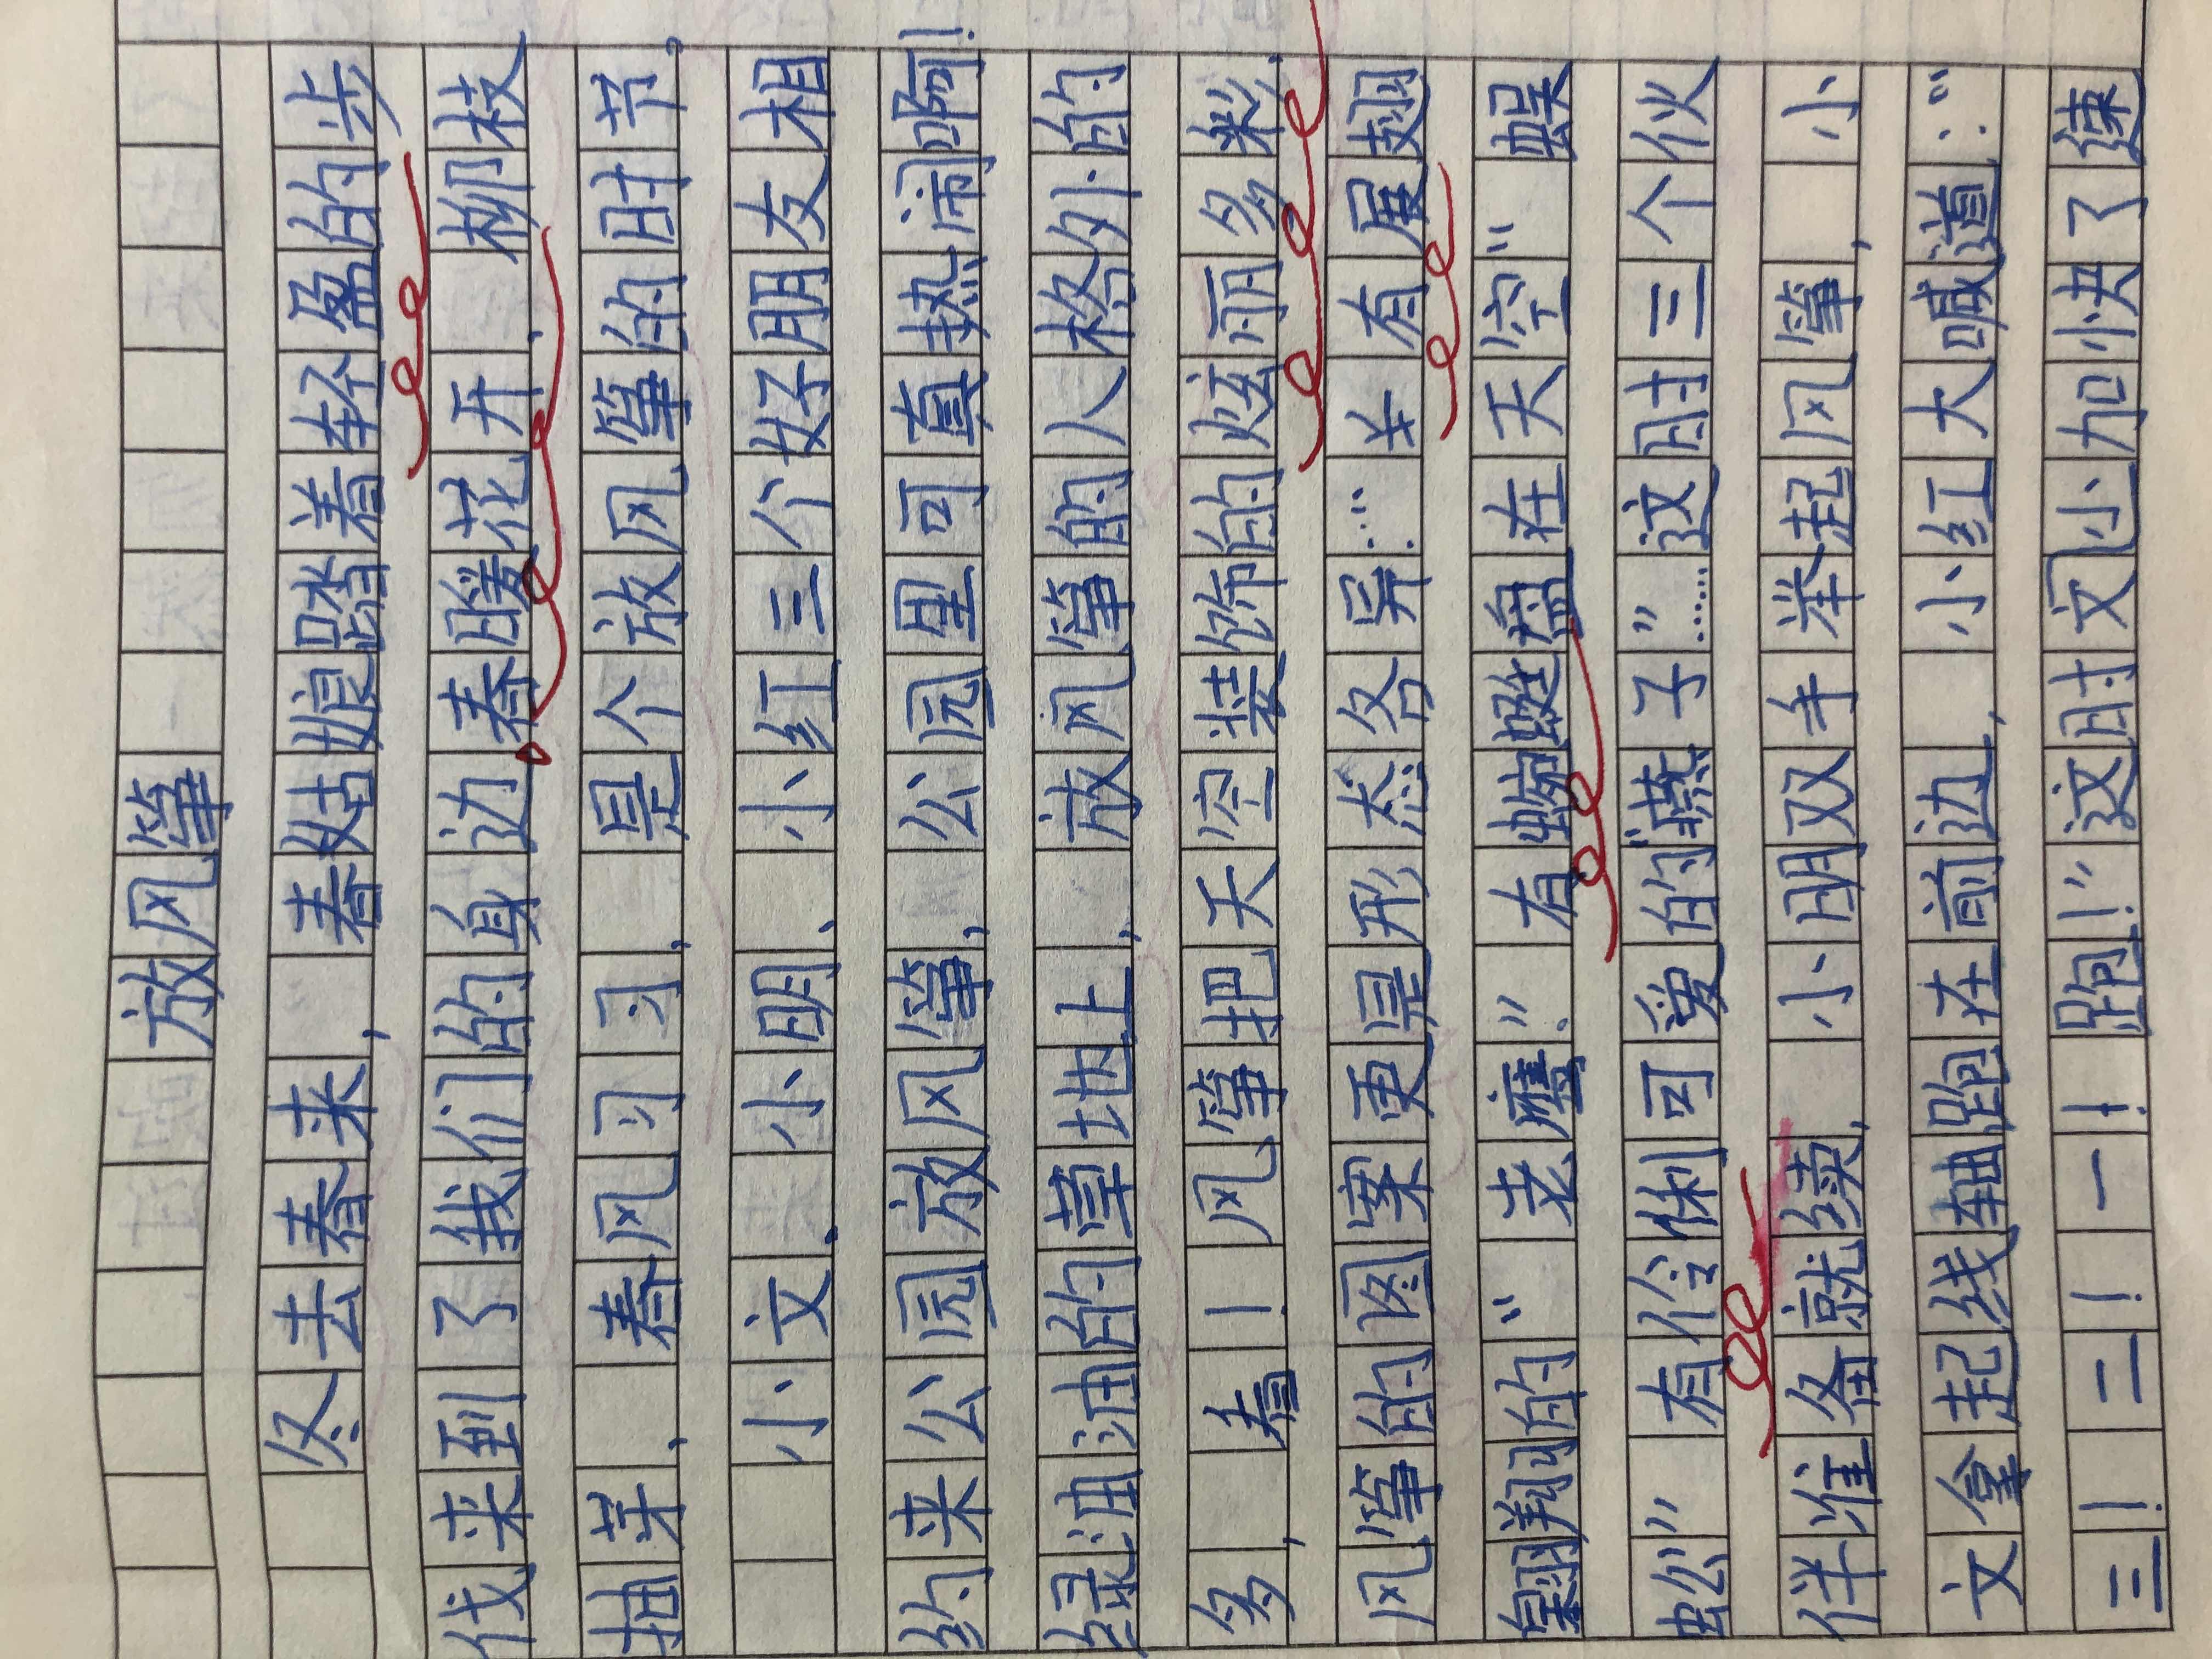 放风筝
冬去春来，春姑娘踏着轻盈的步
伐来到了我们的身边。春暖花开、柳枝
抽芽，春风习习，是个放风筝的时节，
小文、小明、小红三个好朋友相
约来公园放风筝，公园里可真热闹啊！
绿油油的草地上，放风筝的人格外的
多，看！风筝把天空装饰的炫丽多彩，
风筝的图案更是形态各异……有展翅
翱翔的“老鹰”。有蜿蜒盘在天空“蜈
蚣”有伶俐可爱的“燕子”……这时三个伙
伴准备就续，小明双手举起风筝，小
文拿起线轴跑在前边，小红大喊道：“
三！二！一！跑！”这时文小加快了速